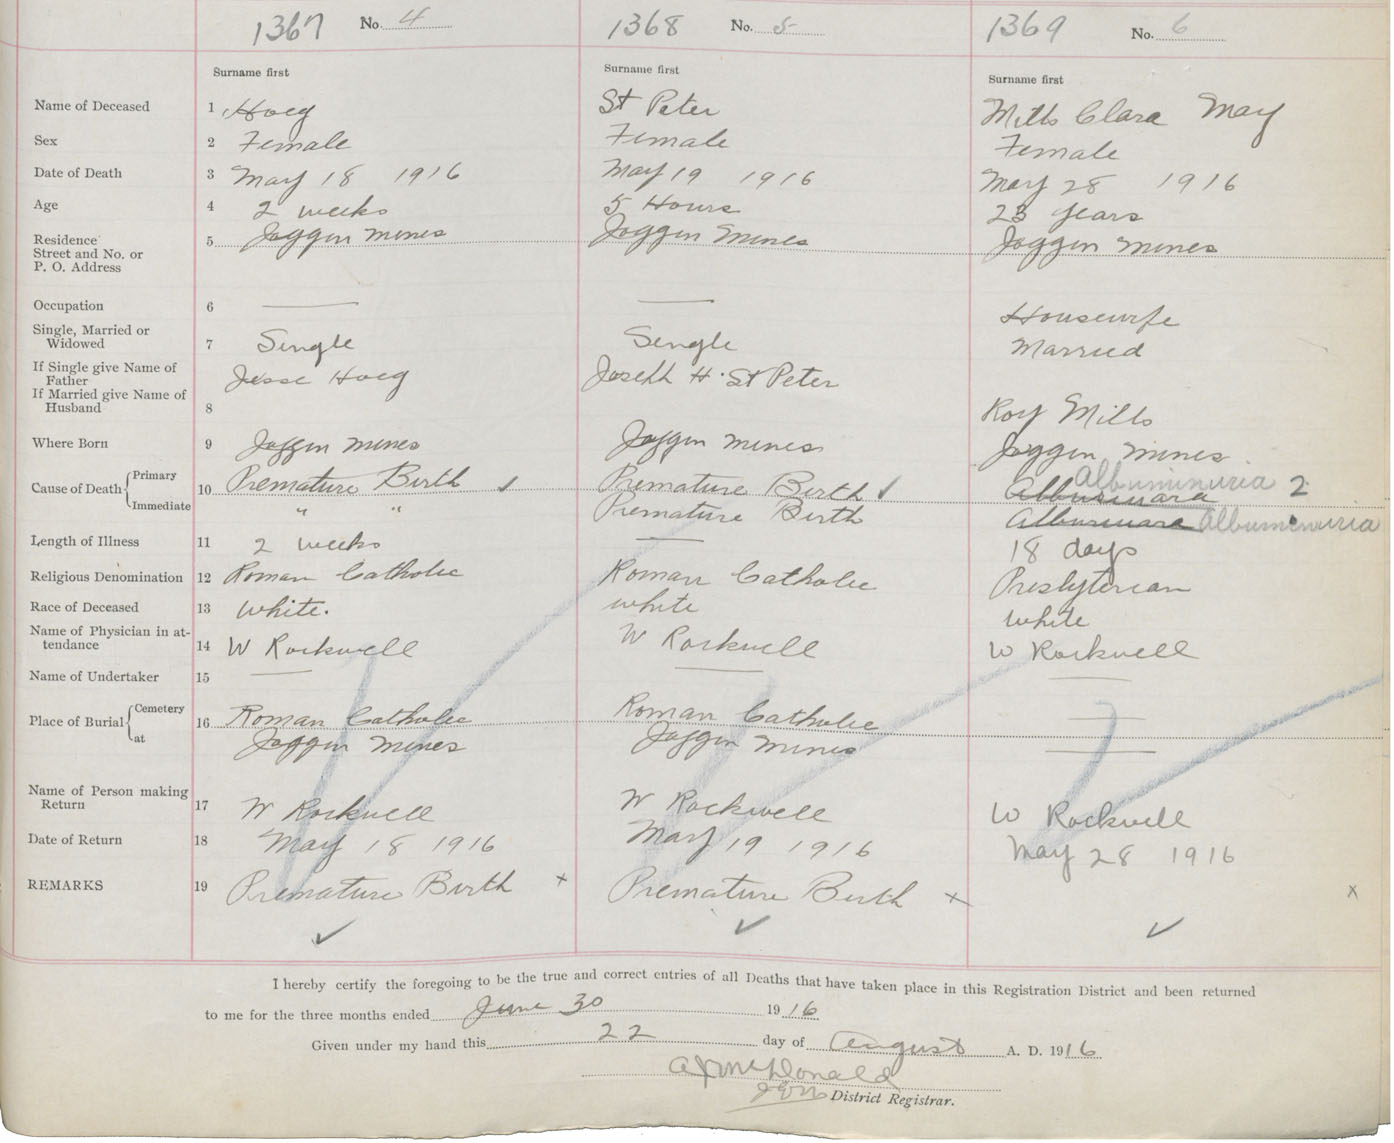 1367 No. 4 1368 No. 5 1369 No. 6
Surname first Surname first Surname first
Name of Deceased 1 Hoeg St Peter Mills Clara May
Sex 2 Female Female Female
Date of Death 3 May 18 1916 May 19 1916 May 28 1916
Age 4 2 weeks 5 Hours 23 years
Residence Street and No. or P. O. Address 5 Joggin Mines Joggin Mines Joggin Mines
Occupation 6 Housewife
Single, Married or Widowed 7 Single Single Married
If Single give Name of Father Jesse Hoeg Joseph H. St Peter
If Married give Name of Husband 8 Roy Mills
Where Born 9 Joggin Mines Joggin Mines Joggin Mines
Cause of Death 10 Primary Premature Birth ✓ Premature Birth ✓ Albuminuria 2
Immediate " " Premature Birth Albumenuria
Length of Illness 11 2 weeks 18 days
Religious Denomination 12 Roman Catholic Roman Catholic Presbyterian
Race of Deceased 13 White. White White
Name of Physician in attendance 14 W Rockwell W Rockwell W Rockwell
Name of Undertaker 15
Place of Burial 16 Cemetery Roman Catholic Roman Catholic
at Joggin Mines Joggin Mines
Name of Person making Return 17 W Rockwell W Rockwell W Rockwell
Date of Return 18 May 18 1916 May 19 1916 May 28 1916
REMARKS 19 Premature Birth x Premature Birth x x
✓ ✓ ✓
I hereby certify the foregoing to be the true and correct entries of all Deaths that have taken place in this Registration District and been returned
to me for the three months ended June 30 1916
Given under my hand this 22 day of August A. D. 1916
McDonald
District Registrar.